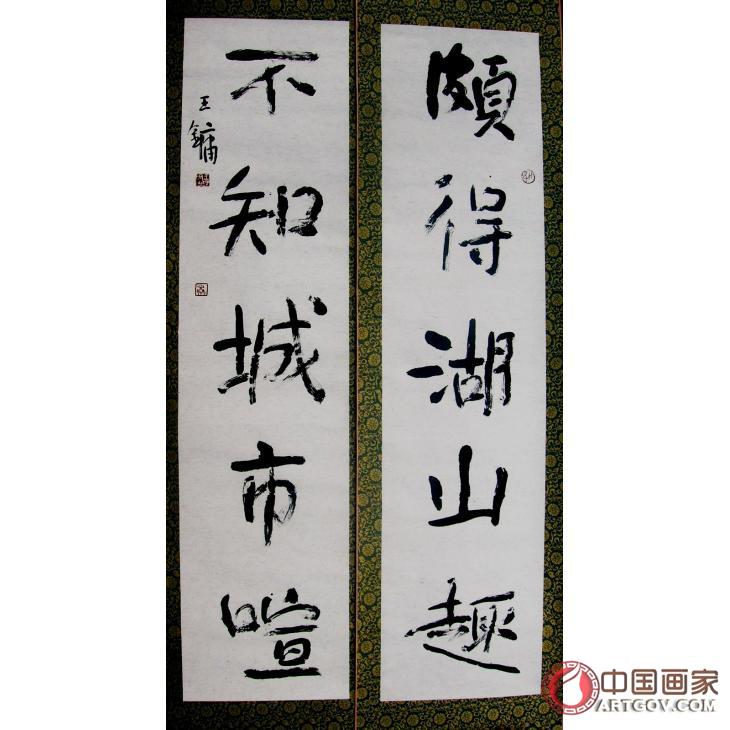 頗得湖山趣
不知城市喧
王鏞
中国画家
ARTGOV.COM